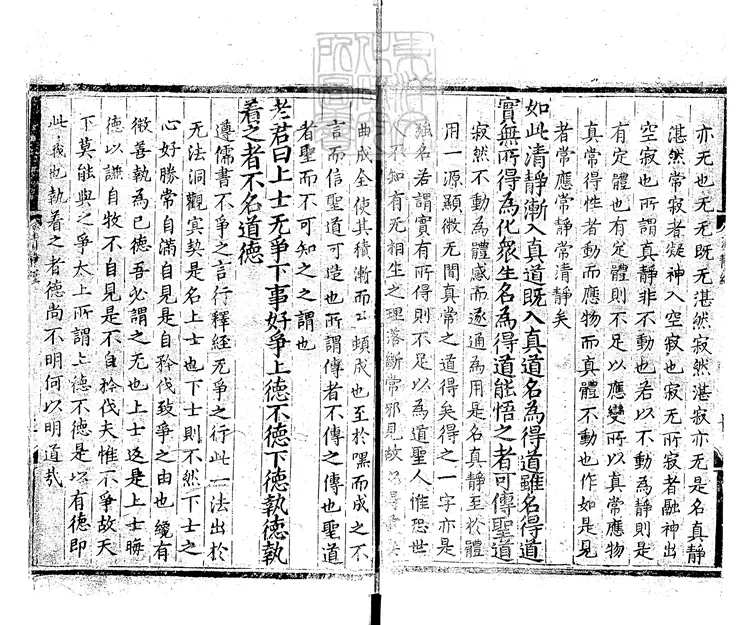 亦无也无无既无湛然寂然湛寂亦无是名真靜
湛然常寂者凝神入空寂也寂无所寂者融神出
空寂也所謂真靜非不動也若以不動為靜則是
有定體也有定體則不足以應變所以真常應物
真常得性者動而應物而真體不動也作如是見
者常應常靜常清靜矣
如此清靜漸入真道既入真道名為得道雖名得道
實無所得為化衆生名為得道能悟之者可傳聖道
寂然不動為體感而遂通為用是名真靜至於體
用一源顯微无間真常之道得矣得之一字亦是
強名若謂實有所得則不足以為道聖人惟恐世
人不知有无相生之理落斷常邪見故
曲成全使其積漸而至頓成也至於嘿而成之不
言而信聖道可造也所謂傳者不傳之傳也聖道
者聖而不可知之之謂也
老君曰上士无爭下事好爭上德不德下德執德執
着之者不名道德
遵儒書不爭之言行釋經无爭之行此一法出於
无法洞觀冥契是名上士也下士則不然下士之
心好勝常自滿自見是自矜伐致爭之由也纔有
微善執為已德吾必謂之无也上士返是上士晦
德以謙自牧不自見是不自矜伐夫惟不爭故天
下莫能與之爭太上所謂上德不德是以有德即
此義也執着之者德尚不明何以明道哉